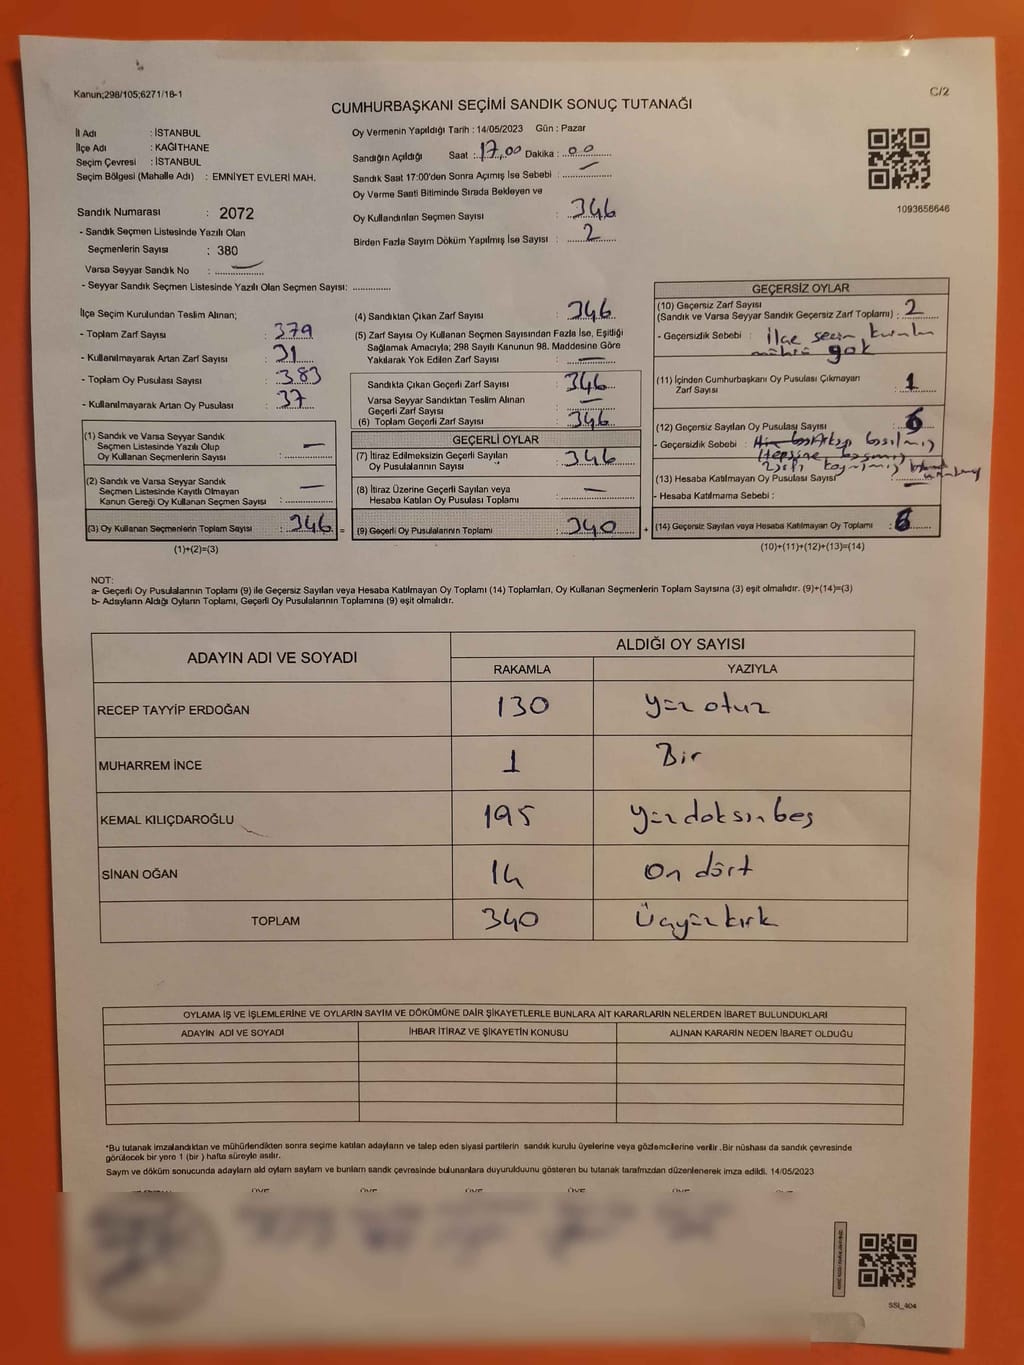 Kanun;298/105;6271/16-1
C/2
CUMHURBAŞKANI SEÇİMİ SANDIK SONUÇ TUTANAĞI
İl Adı : İSTANBUL
İlçe Adı : KAĞITHANE
Seçim Çevresi : İSTANBUL
Seçim Bölgesi (Mahalle Adı) : EMNİYET EVLERİ MAH.
Sandık Numarası : 2072
- Sandık Seçmen Listesinde Yazılı Olan
Seçmenlerin Sayısı : 380
Varsa Seyyar Sandık No :
- Seyyar Sandık Seçmen Listesinde Yazılı Olan Seçmen Sayısı:
Oy Vermenin Yapıldığı Tarih : 14/05/2023 Gün : Pazar
Sandığın Açıldığı Saat : 17,00 Dakika : 00
Sandık Saat 17:00'den Sonra Açımış İse Sebebi :
Oy Verme Saati Bitiminde Sırada Bekleyen ve
Oy Kullandırılan Seçmen Sayısı : 346
Birden Fazla Sayım Döküm Yapılmış İse Sayısı : 2
1093656646
İlçe Seçim Kurulundan Teslim Alınan;
- Toplam Zarf Sayısı : 379
- Kullanılmayarak Artan Zarf Sayısı : 31
- Toplam Oy Pusulası Sayısı : 383
- Kullanılmayarak Artan Oy Pusulası : 37
(1) Sandık ve Varsa Seyyar Sandık
Seçmen Listesinde Yazılı Olup
Oy Kullanan Seçmenlerin Sayısı : —
(2) Sandık ve Varsa Seyyar Sandık
Seçmen Listesinde Kayıtlı Olmayan
Kanun Gereği Oy Kullanan Seçmen Sayısı : —
(3) Oy Kullanan Seçmenlerin Toplam Sayısı : 346 =
(1)+(2)=(3)
(4) Sandıktan Çıkan Zarf Sayısı : 346
(5) Zarf Sayısı Oy Kullanan Seçmen Sayısından Fazla İse, Eşitliği
Sağlamak Amacıyla; 298 Sayılı Kanunun 98. Maddesine Göre
Yakılarak Yok Edilen Zarf Sayısı : —
Sandıkta Çıkan Geçerli Zarf Sayısı : 346
Varsa Seyyar Sandıktan Teslim Alınan
Geçerli Zarf Sayısı : —
(6) Toplam Geçerli Zarf Sayısı : 346
GEÇERLİ OYLAR
(7) İtiraz Edilmeksizin Geçerli Sayılan
Oy Pusulalarının Sayısı : 346
(8) İtiraz Üzerine Geçerli Sayılan veya
Hesaba Katılan Oy Pusulası Toplamı : —
(9) Geçerli Oy Pusulalarının Toplamı : 340 +
GEÇERSİZ OYLAR
(10) Geçersiz Zarf Sayısı
(Sandık ve Varsa Seyyar Sandık Geçersiz Zarf Toplamı) : 2
- Geçersizlik Sebebi : İlçe seçim kurulu
mührü yok
(11) İçinden Cumhurbaşkanı Oy Pusulası Çıkmayan
Zarf Sayısı : 1
(12) Geçersiz Sayılan Oy Pusulası Sayısı :
- Geçersizlik Sebebi : basılmış
Hepsine basmış
(13) Hesaba Katılmayan Oy Pusulası Sayısı :
- Hesaba Katılmama Sebebi :
(14) Geçersiz Sayılan veya Hesaba Katılmayan Oy Toplamı : 6
(10)+(11)+(12)+(13)=(14)
NOT:
a- Geçerli Oy Pusulalarının Toplamı (9) ile Geçersiz Sayılan veya Hesaba Katılmayan Oy Toplamı (14) Toplamları, Oy Kullanan Seçmenlerin Toplam Sayısına (3) eşit olmalıdır. (9)+(14)=(3)
b- Adayların Aldığı Oyların Toplamı, Geçerli Oy Pusulalarının Toplamına (9) eşit olmalıdır.
ADAYIN ADI VE SOYADI
ALDIĞI OY SAYISI
RAKAMLA YAZIYLA
RECEP TAYYİP ERDOĞAN 130 yüz otuz
MUHARREM İNCE 1 Bir
KEMAL KILIÇDAROĞLU 195 yüzdoksınbeş
SİNAN OĞAN 14 On dört
TOPLAM 340 Üçyüzkırk
OYLAMA İŞ VE İŞLEMLERİNE VE OYLARIN SAYIM VE DÖKÜMÜNE DAİR ŞİKAYETLERLE BUNLARA AİT KARARLARIN NELERDEN İBARET BULUNDUKLARI
ADAYIN ADI VE SOYADI İHBAR İTİRAZ VE ŞİKAYETİN KONUSU ALINAN KARARIN NEDEN İBARET OLDUĞU
*Bu tutanak imzalandıktan ve mühürlendikten sonra seçime katılan adayların ve talep eden siyasi partilerin sandık kurulu üyelerine veya gözlemcilerine verilir .Bir nüshası da sandık çevresinde
görülecek bir yere 1 (bir ) hafta süreyle asılır.
Sayım ve döküm sonucunda adayların ald oyların sayların ve bunların sandık çevresinde bulunanlara duyurulduunu gösteren bu tutanak tarafmzdan düzenlenerek imza edildi. 14/05/2023
SSI_404